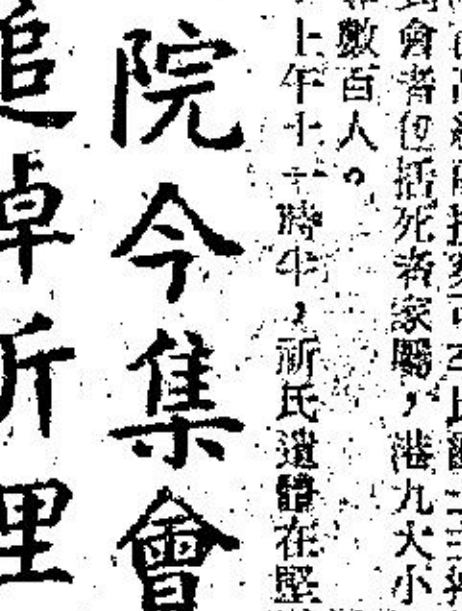 到會者包括死者家屬，港九大小
數百人。
上午十一時半，祈氏遺體在堅
院今集會
追悼祈理